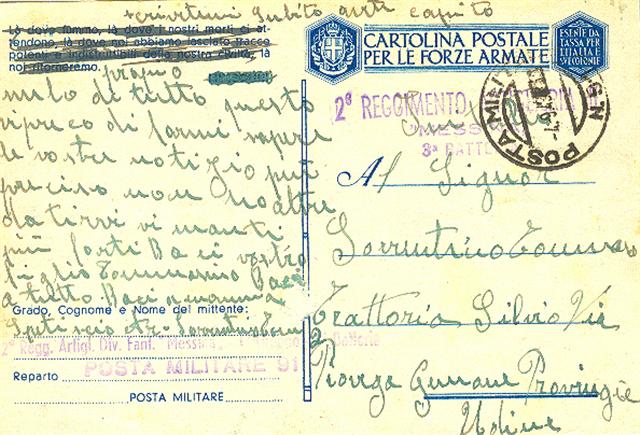 + scrivetemi subito avete capito
Là dove fummo, là dove i nostri morti ci at-
tendono, là dove noi abbiamo lasciato tracce
potenti e indistruttibili della nostra civiltà, là
noi ritorneremo.
proprio
di tutto questo
vi preco di farmi sapere
le vostre notizio più
preciso non ho altro
da tirvi vi manti
più forti Baci vostro
figlio Tommasino Baci
a tutto Baci a mamma
Grado, Cognome e Nome del mittente:
2° Regg. Artigl. Div. Fant. "Messina" Batteria
POSTA MILITARE 91
Reparto
POSTA MILITARE
CARTOLINA POSTALE
PER LE FORZE ARMATE
ESENTE DA
TASSA PER
L'ITALIA E
SUE COLONIE
POSTA MILI
2° REGGIMENTO
"MESS
3ª BATTE
Al Signor
Sorrentino
Trattoria Silvio Via
Provingie
Udine